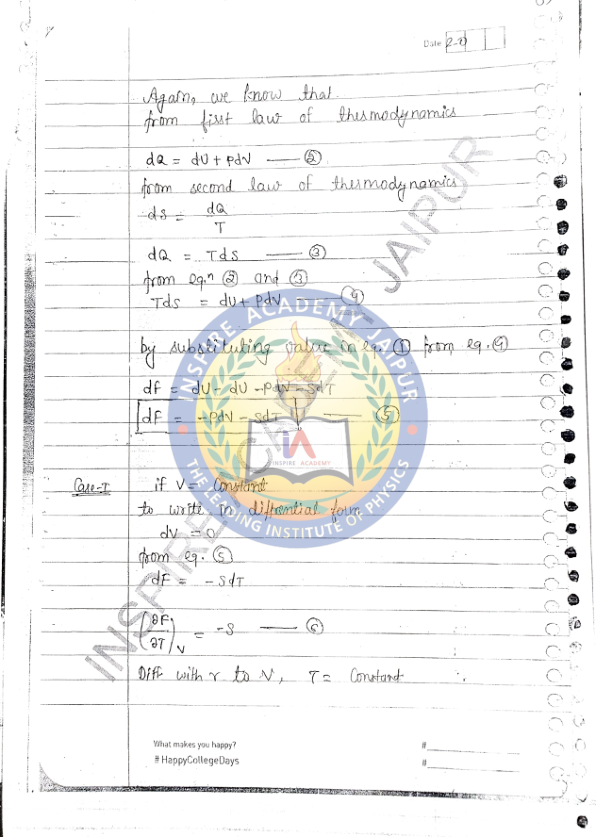 Date 2-0
Again, we know that
from first law of thermodynamics
dQ = dU + PdV —— ②
from second law of thermodynamics
dS = dQ/T
dQ = TdS —— ③
from eq.n ② and ③
TdS = dU + PdV —— ④
by substituting value in eq. ① from eq. ④
dF = dU - dU - PdV - SdT
dF = -PdV - SdT —— ⑤
Case-I if V = Constant
to write in diffrential form
dV = 0
from eq. ⑤
dF = -SdT
(∂F/∂T)V = -S —— ⑥
Diff with r to V, T = Constant
What makes you happy?
#HappyCollegeDays
#
#
INSPIRE ACADEMY JAIPUR
THE LEADING INSTITUTE OF PHYSICS
iA
INSPIRE ACADEMY
INSPIRE ACADEMY JAIPUR